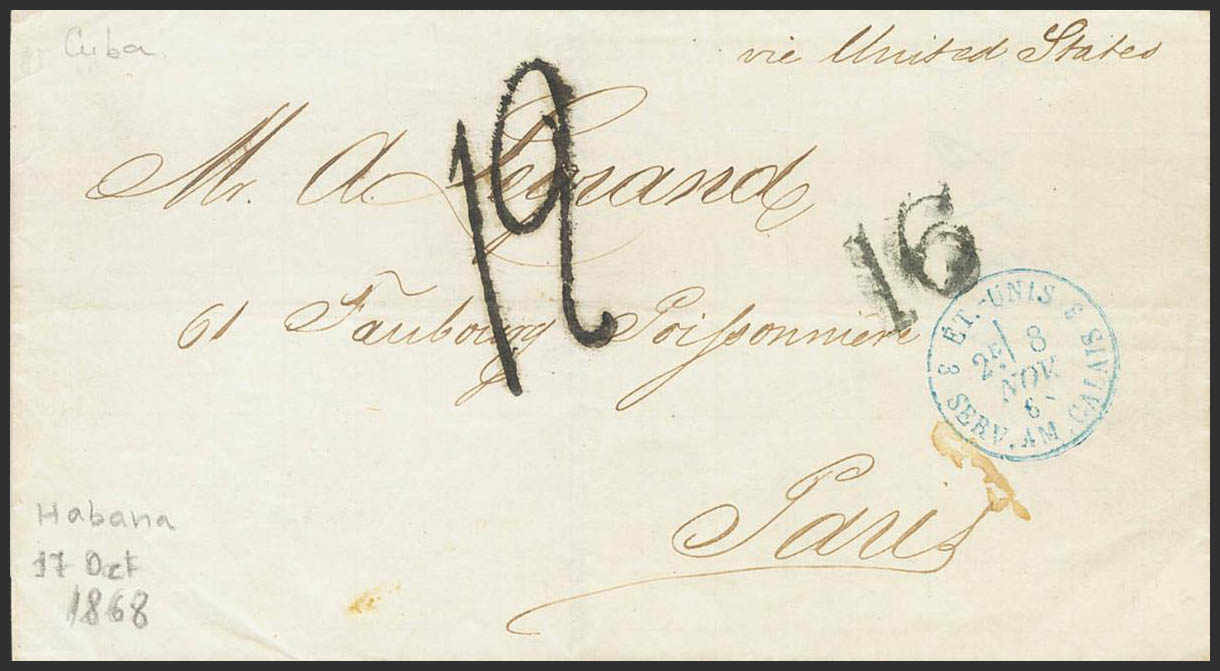 Cuba
vie United States
Mr. A. Legrand
12
16
61 Faubourg Poissonnière
3 ET.-UNIS 3 SERV. AM. CALAIS
2E 8
NOV.
6
Paris
Habana
17 Oct
1868